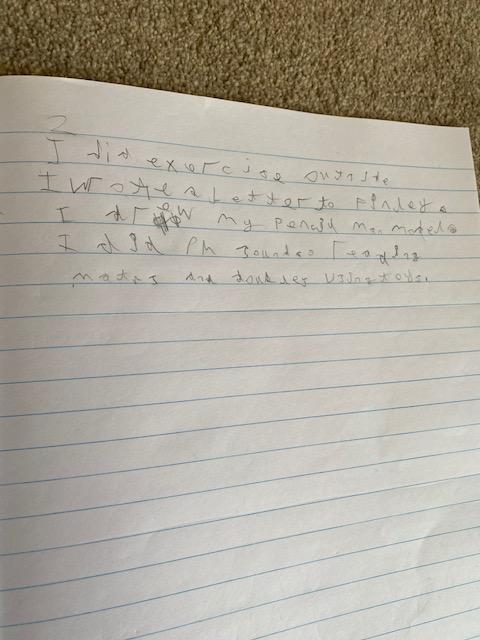 2
I did exercise outside
I wrote a letter to Finley.
I drew my pencil man model.
I did Ph sounds reading
maths and doubles using toys.